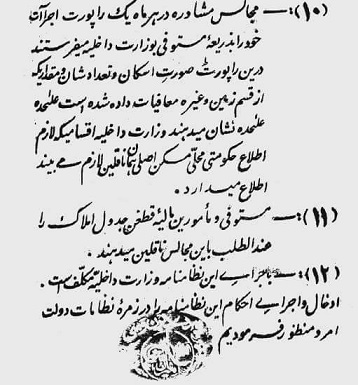 (۱۰):— مجالس مشاوره در هر ماه یک راپورت اجراآت
خود را بذریعهٔ مستوفی بوزارت داخلیه میفرستند
درین راپورت صورت اسکان و تعداد شان و مقداریکه
از قسم زمین و غیره معافیات داده شده است علٰحده
علٰحده نشان میدهند وزارت داخلیه اقسامیکه لازم
اطلاع حکومتی محلی مسکن اصلی همان ناقلین لازم مے بیند
اطلاع میدارد.
(۱۱):— مستوفی و مأمورین مالیهٔ قطغن جدول املاک را
عند الطلب باین مجالس ناقلین میدهند.
(۱۲):— باجراے این نظامنامه وزارت داخلیه مکلف است.
ادخال و اجراے احکام این نظامنامه را در زمرهٔ نظامات دولت
امر و منظور فرمودیم